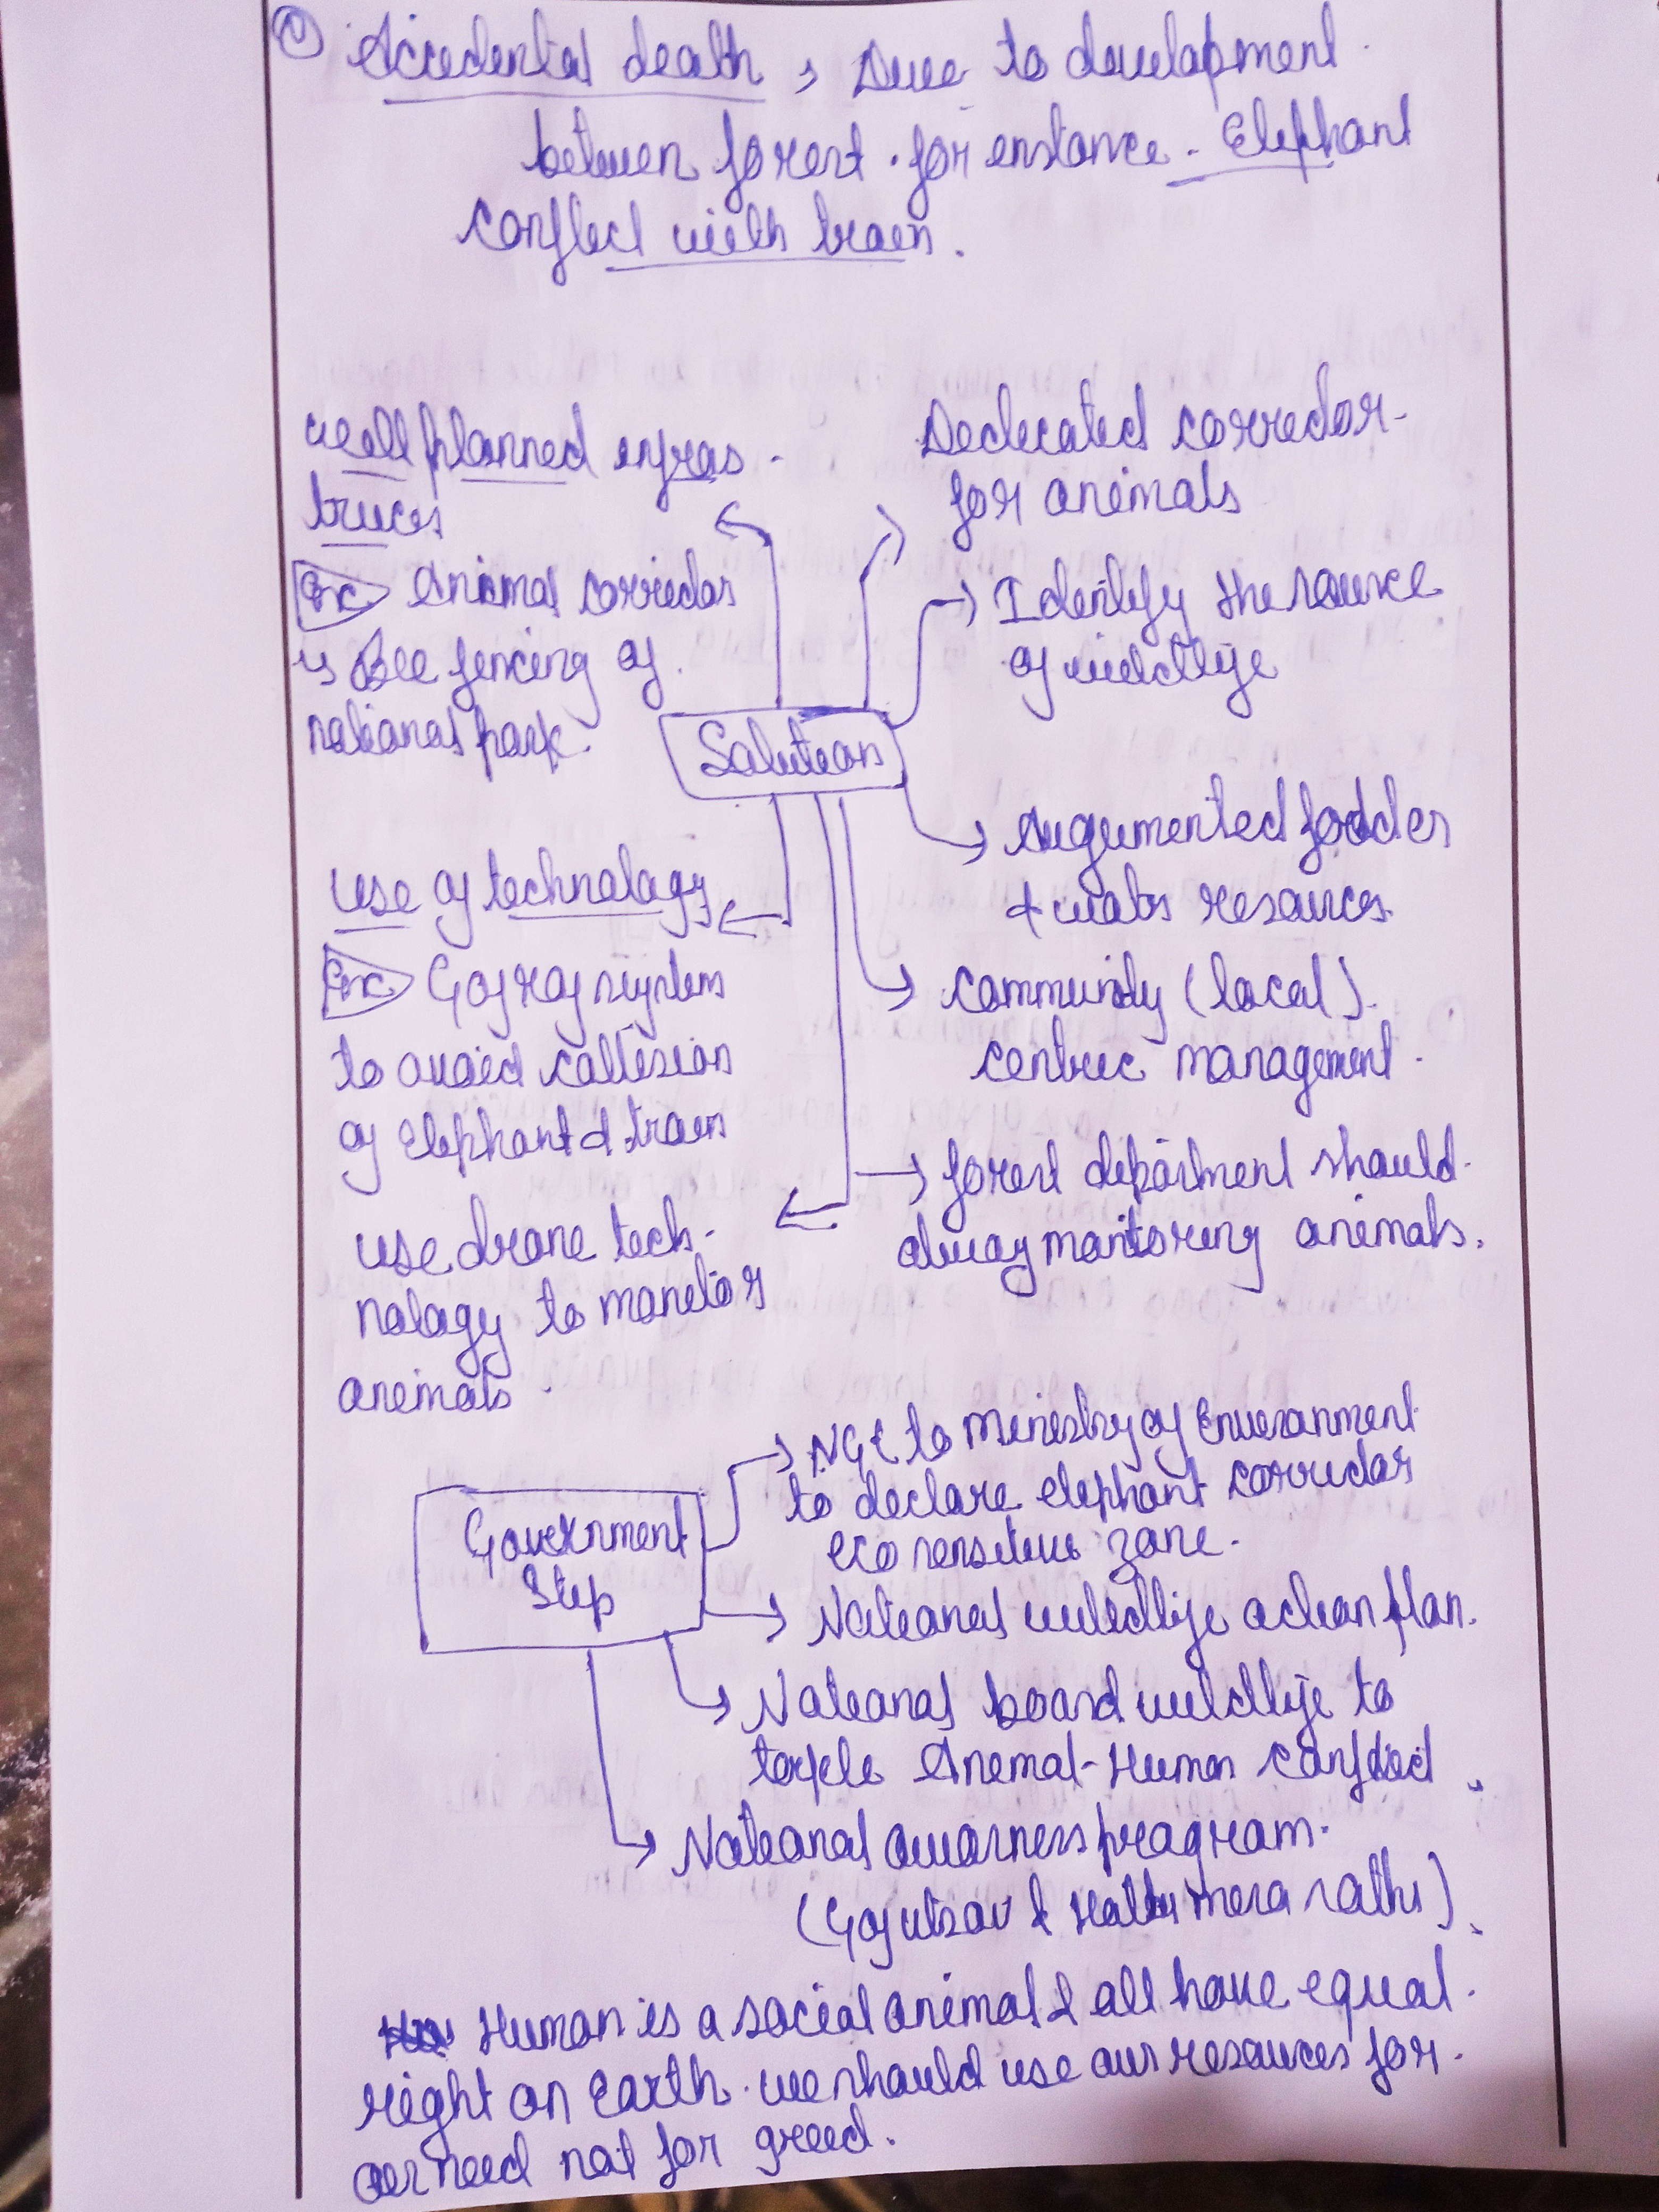 Accedental death → Due to development
between forest. for enstance - Elephant
conflect with train.
well planned infras-
truces
Animal corridor
is Bee fencing of
national park.
Dedecated corredor
for animals
Identify the source
of wildlife
Solution
Augumented fodder
& water resources
use of technology
Gajraj system
to avoid collision
of elephant & train
community (local)
centric management.
use drone tech-
nology to monitor
animals.
forest department should
alway monitoring animals.
Government
Step
NGT to ministry of Environment
to declare elephant corridor
eco sensitive zone.
National wildlife action plan.
National board wildlife to
Animal-Human conflict
National awarness program.
(Gaj utsav & Hathi mera sathi)
Human is a social animal & all have equal
right on Earth. we should use our resources for
our need not for greed.